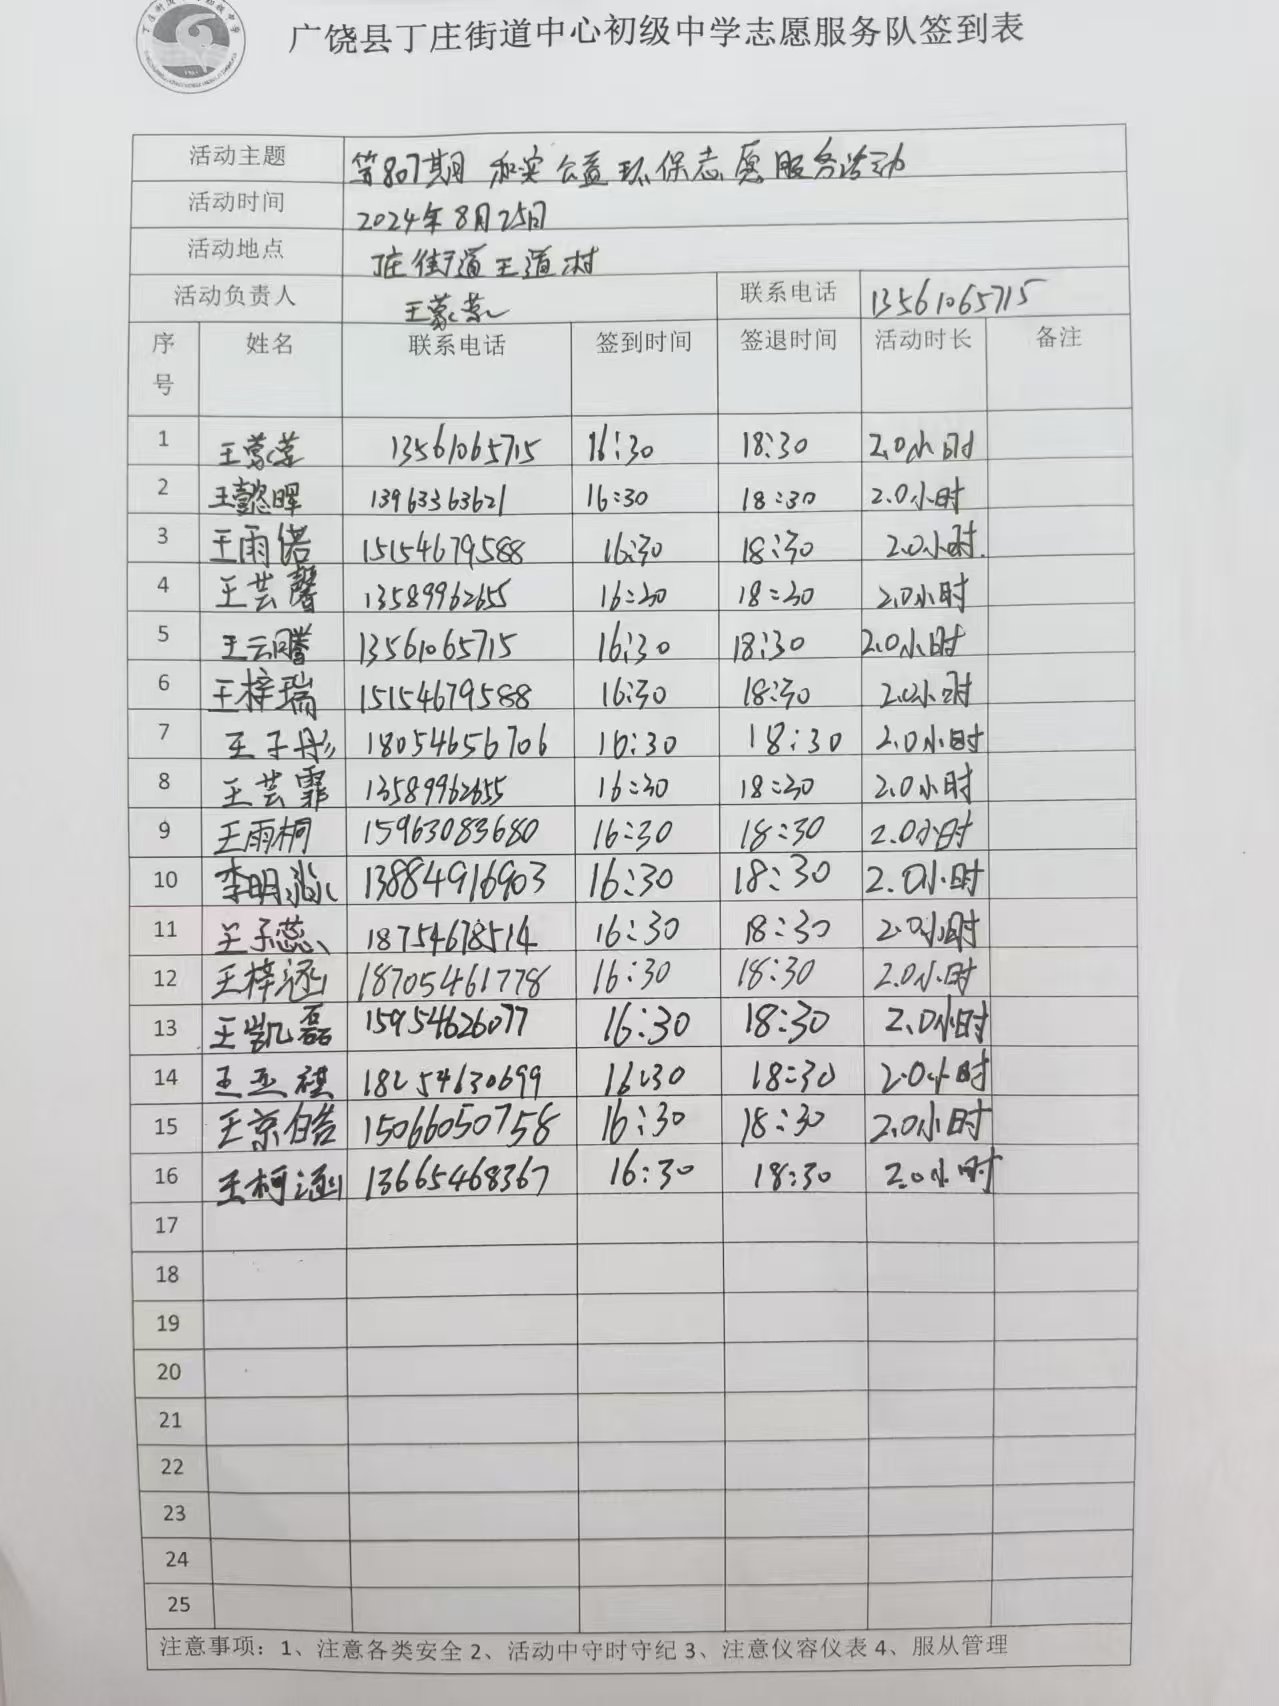 广饶县丁庄街道中心初级中学志愿服务队签到表
活动主题 第807期 和实公益环保志愿服务活动
活动时间 2024年8月25日
活动地点 丁庄街道王道村
活动负责人 王蒙蒙 联系电话 13561065715
序号 姓名 联系电话 签到时间 签退时间 活动时长 备注
1 王蒙蒙 13561065715 16:30 18:30 2.0小时
2 王懿晖 13963363621 16:30 18:30 2.0小时
3 王雨偌 15154679588 16:30 18:30 2.0小时.
4 王芸馨 13589962655 16:30 18:30 2.0小时
5 王云 13561065715 16:30 18:30 2.0小时
6 王梓瑞 15154679588 16:30 18:30 2.0小时
7 王子彤 18054656706 16:30 18:30 2.0小时
8 王芸霏 13589962655 16:30 18:30 2.0小时
9 王雨桐 15963083680 16:30 18:30 2.0小时
10 李明泓 13884916903 16:30 18:30 2.0小时
11 王子蕊 18754678514 16:30 18:30 2.0小时
12 王梓涵 18705461778 16:30 18:30 2.0小时
13 王凯磊 15954626077 16:30 18:30 2.0小时
14 王玉祺 18254630699 16:30 18:30 2.0小时
15 王京皓 15066050758 16:30 18:30 2.0小时
16 王柯涵 13665468367 16:30 18:30 2.0小时
17
18
19
20
21
22
23
24
25
注意事项：1、注意各类安全 2、活动中守时守纪 3、注意仪容仪表 4、服从管理